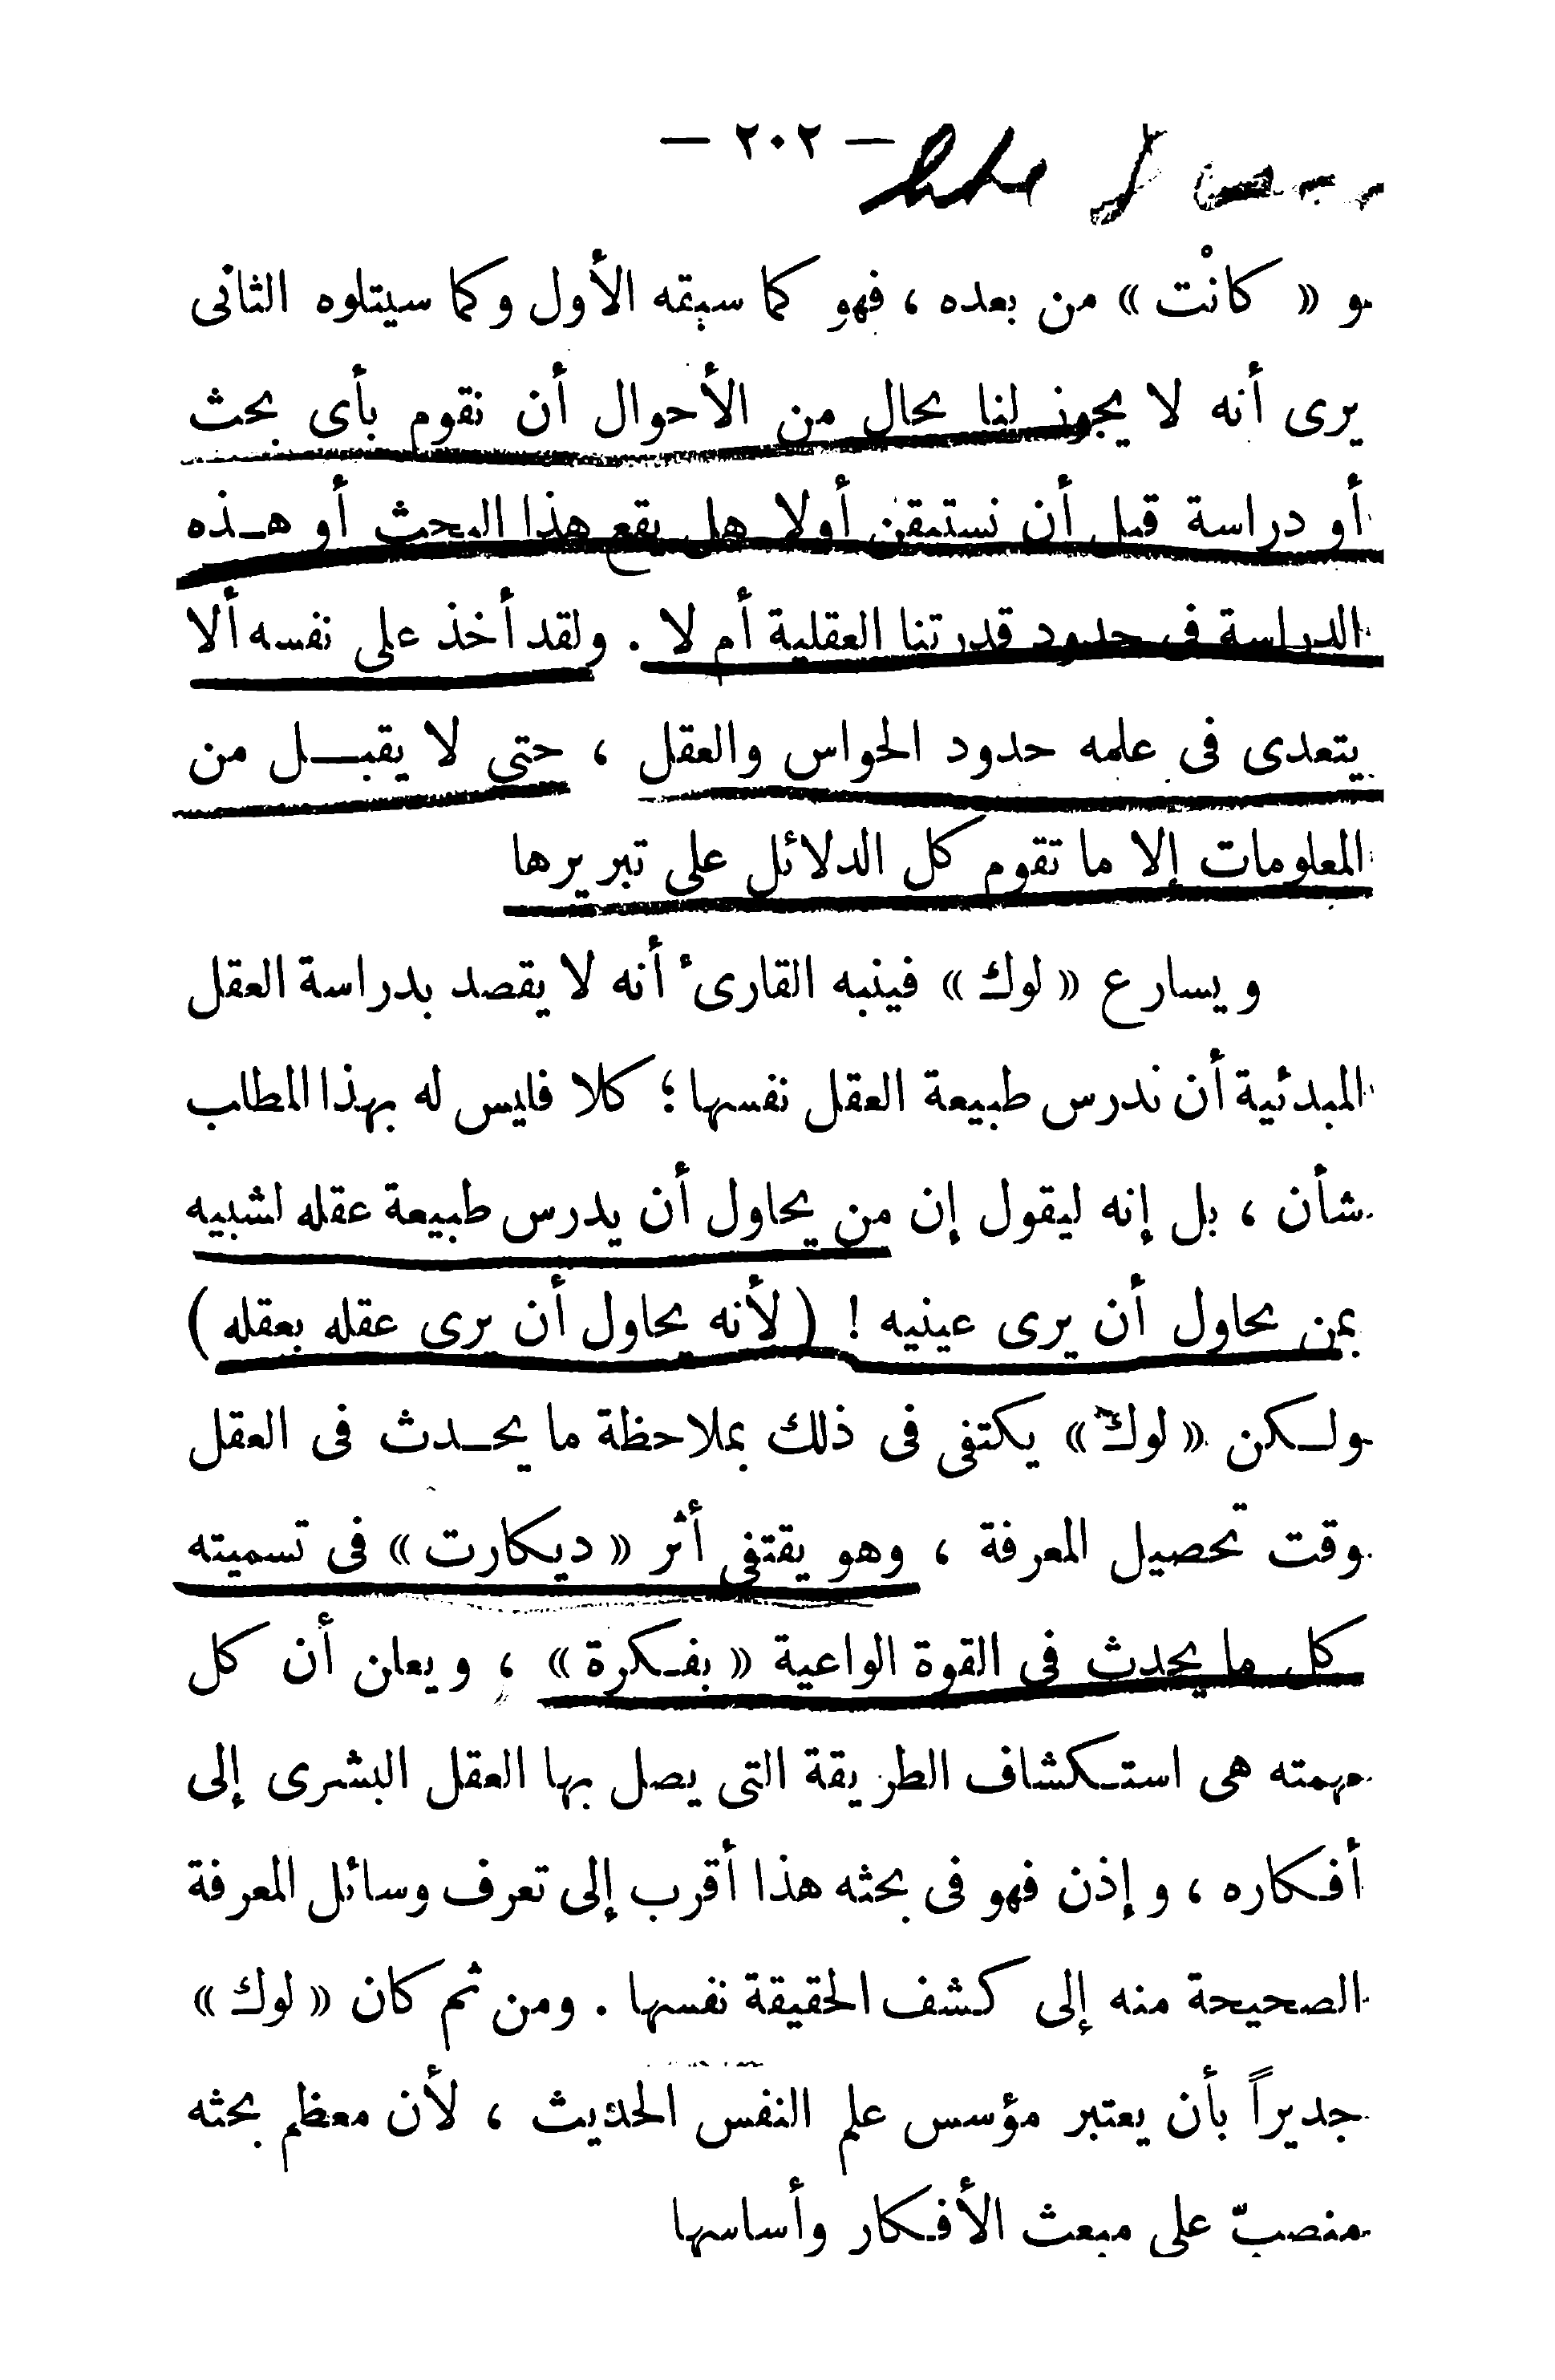 — ٢٠٢ —
و « كانْت » من بعده ، فهو كما سبقه الأول وكما سيتلوه الثانى
يرى أنه لا يجوز لنا بحال من الأحوال أن نقوم بأى بحث
أو دراسة قبل أن نستيقن أولا هل يقع هذا البحث أو هـذه
الدراسة فى حدود قدرتنا العقلية أم لا . ولقد أخذ على نفسه ألا
يتعدى فى علمه حدود الحواس والعقل ، حتى لا يقبـل من
المعلومات إلا ما تقوم كل الدلائل على تبريرها
ويسارع « لوك » فينبه القارئ أنه لا يقصد بدراسة العقل
المبدئية أن ندرس طبيعة العقل نفسها ؛ كلا فليس له بهذا المطلب
شأن ، بل إنه ليقول إن من يحاول أن يدرس طبيعة عقله لشبيه
بمن يحاول أن يرى عينيه ! ( لأنه يحاول أن يرى عقله بعقله )
ولـكن « لوك » يكتفى فى ذلك بملاحظة ما يحـدث فى العقل
وقت تحصيل المعرفة ، وهو يقتفى أثر « ديكارت » فى تسميته
كل ما يحدث فى القوة الواعية « بفـكرة » ، ويعلن أن كل
مهمته هى استـكشاف الطريقة التى يصل بها العقل البشرى إلى
أفـكاره ، وإذن فهو فى بحثه هذا أقرب إلى تعرف وسائل المعرفة
الصحيحة منه إلى كشف الحقيقة نفسها . ومن ثم كان « لوك »
جديراً بأن يعتبر مؤسس علم النفس الحديث ، لأن معظم بحثه
منصبّ على مبعث الأفـكار وأساسها